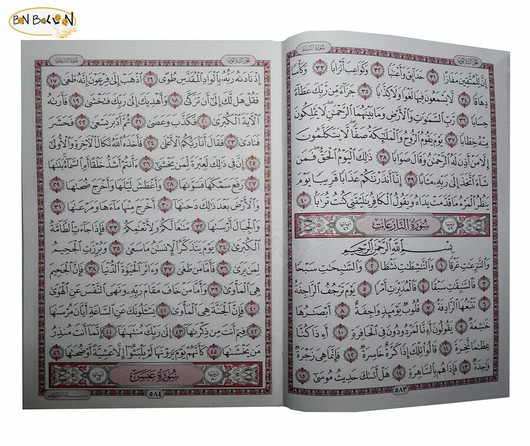 الجزء الثلاثون
سورة النبإ
إِنَّ لِلْمُتَّقِينَ مَفَازًا ٣١ حَدَآئِقَ وَأَعْنَٰبًا ٣٢ وَكَوَاعِبَ أَتْرَابًا ٣٣ وَكَأْسًا
دِهَاقًا ٣٤ لَّا يَسْمَعُونَ فِيهَا لَغْوًا وَلَا كِذَّٰبًا ٣٥ جَزَآءً مِّن رَّبِّكَ عَطَآءً
حِسَابًا ٣٦ رَّبِّ ٱلسَّمَٰوَٰتِ وَٱلْأَرْضِ وَمَا بَيْنَهُمَا ٱلرَّحْمَٰنِ لَا يَمْلِكُونَ
مِنْهُ خِطَابًا ٣٧ يَوْمَ يَقُومُ ٱلرُّوحُ وَٱلْمَلَٰٓئِكَةُ صَفًّا لَّا يَتَكَلَّمُونَ
إِلَّا مَنْ أَذِنَ لَهُ ٱلرَّحْمَٰنُ وَقَالَ صَوَابًا ٣٨ ذَٰلِكَ ٱلْيَوْمُ ٱلْحَقُّ فَمَن
شَآءَ ٱتَّخَذَ إِلَىٰ رَبِّهِۦ مَـَٔابًا ٣٩ إِنَّآ أَنذَرْنَٰكُمْ عَذَابًا قَرِيبًا يَوْمَ
يَنظُرُ ٱلْمَرْءُ مَا قَدَّمَتْ يَدَاهُ وَيَقُولُ ٱلْكَافِرُ يَٰلَيْتَنِى كُنتُ تُرَٰبًۢا ٤٠
سُورَةُ النَّازِعَاتِ
بِسْمِ ٱللَّهِ ٱلرَّحْمَٰنِ ٱلرَّحِيمِ
وَٱلنَّٰزِعَٰتِ غَرْقًا ١ وَٱلنَّٰشِطَٰتِ نَشْطًا ٢ وَٱلسَّٰبِحَٰتِ سَبْحًا
٣ فَٱلسَّٰبِقَٰتِ سَبْقًا ٤ فَٱلْمُدَبِّرَٰتِ أَمْرًا ٥ يَوْمَ تَرْجُفُ ٱلرَّاجِفَةُ
٦ تَتْبَعُهَا ٱلرَّادِفَةُ ٧ قُلُوبٌ يَوْمَئِذٍ وَاجِفَةٌ ٨ أَبْصَٰرُهَا
خَٰشِعَةٌ ٩ يَقُولُونَ أَءِنَّا لَمَرْدُودُونَ فِى ٱلْحَافِرَةِ ١٠ أَءِذَا كُنَّا
عِظَٰمًا نَّخِرَةً ١١ قَالُوا۟ تِلْكَ إِذًا كَرَّةٌ خَاسِرَةٌ ١٢ فَإِنَّمَا هِىَ زَجْرَةٌ
وَٰحِدَةٌ ١٣ فَإِذَا هُم بِٱلسَّاهِرَةِ ١٤ هَلْ أَتَىٰكَ حَدِيثُ مُوسَىٰٓ ١٥
٥٨٣
الجزء الثلاثون
سورة النازعات
إِذْ نَادَىٰهُ رَبُّهُۥ بِٱلْوَادِ ٱلْمُقَدَّسِ طُوًى ١٦ ٱذْهَبْ إِلَىٰ فِرْعَوْنَ إِنَّهُۥ طَغَىٰ ١٧
فَقُلْ هَل لَّكَ إِلَىٰٓ أَن تَزَكَّىٰ ١٨ وَأَهْدِيَكَ إِلَىٰ رَبِّكَ فَتَخْشَىٰ ١٩ فَأَرَىٰهُ
ٱلْءَايَةَ ٱلْكُبْرَىٰ ٢٠ فَكَذَّبَ وَعَصَىٰ ٢١ ثُمَّ أَدْبَرَ يَسْعَىٰ ٢٢ فَحَشَرَ
فَنَادَىٰ ٢٣ فَقَالَ أَنَا۠ رَبُّكُمُ ٱلْأَعْلَىٰ ٢٤ فَأَخَذَهُ ٱللَّهُ نَكَالَ ٱلْءَاخِرَةِ وَٱلْأُولَىٰٓ
٢٥ إِنَّ فِى ذَٰلِكَ لَعِبْرَةً لِّمَن يَخْشَىٰٓ ٢٦ ءَأَنتُمْ أَشَدُّ خَلْقًا أَمِ ٱلسَّمَآءُ بَنَىٰهَا
٢٧ رَفَعَ سَمْكَهَا فَسَوَّىٰهَا ٢٨ وَأَغْطَشَ لَيْلَهَا وَأَخْرَجَ ضُحَىٰهَا ٢٩
وَٱلْأَرْضَ بَعْدَ ذَٰلِكَ دَحَىٰهَآ ٣٠ أَخْرَجَ مِنْهَا مَآءَهَا وَمَرْعَىٰهَا ٣١
وَٱلْجِبَالَ أَرْسَىٰهَا ٣٢ مَتَٰعًا لَّكُمْ وَلِأَنْعَٰمِكُمْ ٣٣ فَإِذَا جَآءَتِ ٱلطَّآمَّةُ
ٱلْكُبْرَىٰ ٣٤ يَوْمَ يَتَذَكَّرُ ٱلْإِنسَٰنُ مَا سَعَىٰ ٣٥ وَبُرِّزَتِ ٱلْجَحِيمُ
لِمَن يَرَىٰ ٣٦ فَأَمَّا مَن طَغَىٰ ٣٧ وَءَاثَرَ ٱلْحَيَوٰةَ ٱلدُّنْيَا ٣٨ فَإِنَّ ٱلْجَحِيمَ
هِىَ ٱلْمَأْوَىٰ ٣٩ وَأَمَّا مَنْ خَافَ مَقَامَ رَبِّهِۦ وَنَهَى ٱلنَّفْسَ عَنِ ٱلْهَوَىٰ
٤٠ فَإِنَّ ٱلْجَنَّةَ هِىَ ٱلْمَأْوَىٰ ٤١ يَسْـَٔلُونَكَ عَنِ ٱلسَّاعَةِ أَيَّانَ مُرْسَىٰهَا
٤٢ فِيمَ أَنتَ مِن ذِكْرَىٰهَآ ٤٣ إِلَىٰ رَبِّكَ مُنتَهَىٰهَآ ٤٤ إِنَّمَآ أَنتَ مُنذِرُ
مَن يَخْشَىٰهَا ٤٥ كَأَنَّهُمْ يَوْمَ يَرَوْنَهَا لَمْ يَلْبَثُوٓا۟ إِلَّا عَشِيَّةً أَوْ ضُحَىٰهَا ٤٦
سُورَةُ عَبَسَ
٥٨٤